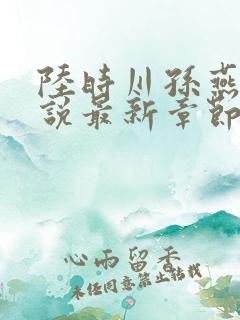 陸時川孫燕
說最新章節
心雨留香
未经同意禁止转载